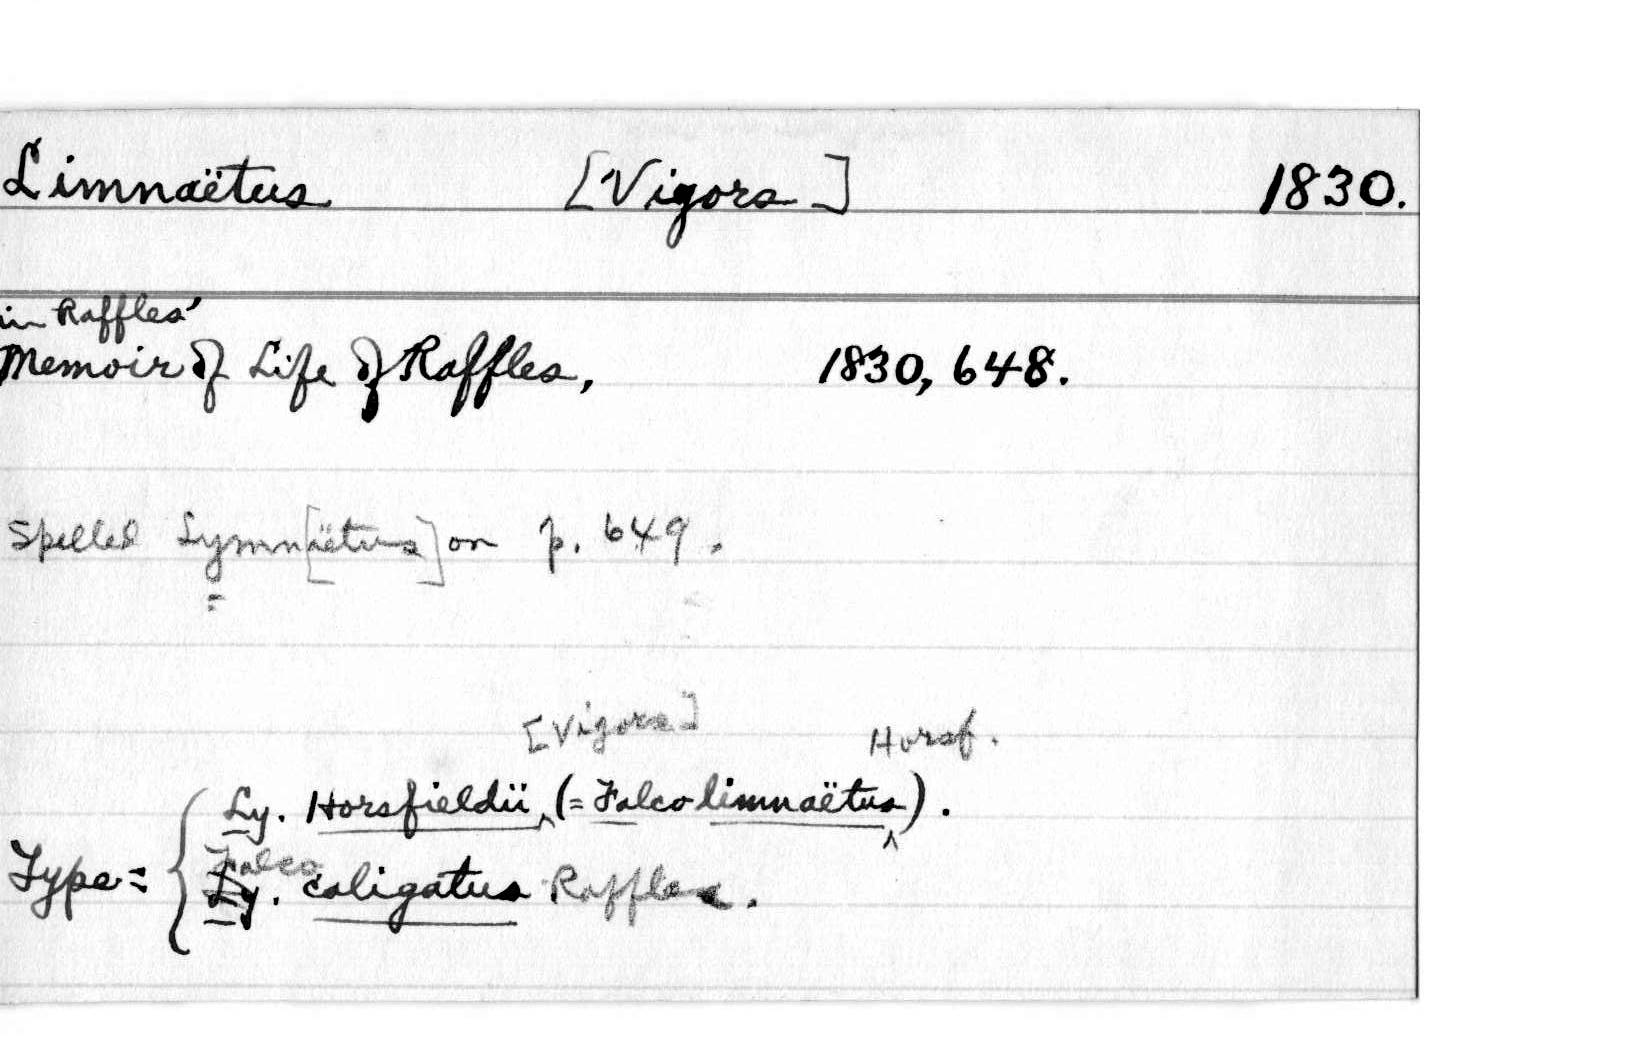 Limnaëtus [Vigors] 1830.
in Raffles'
Memoir of Life of Raffles, 1830, 648.
Spelled Lymn[aëtus] on p. 649.
[Vigors] Horsf.
Ly. Horsfieldii ‸ (= Falco limnaëtus ‸).
Falco
Type = { Ly. caligatus Raffles.